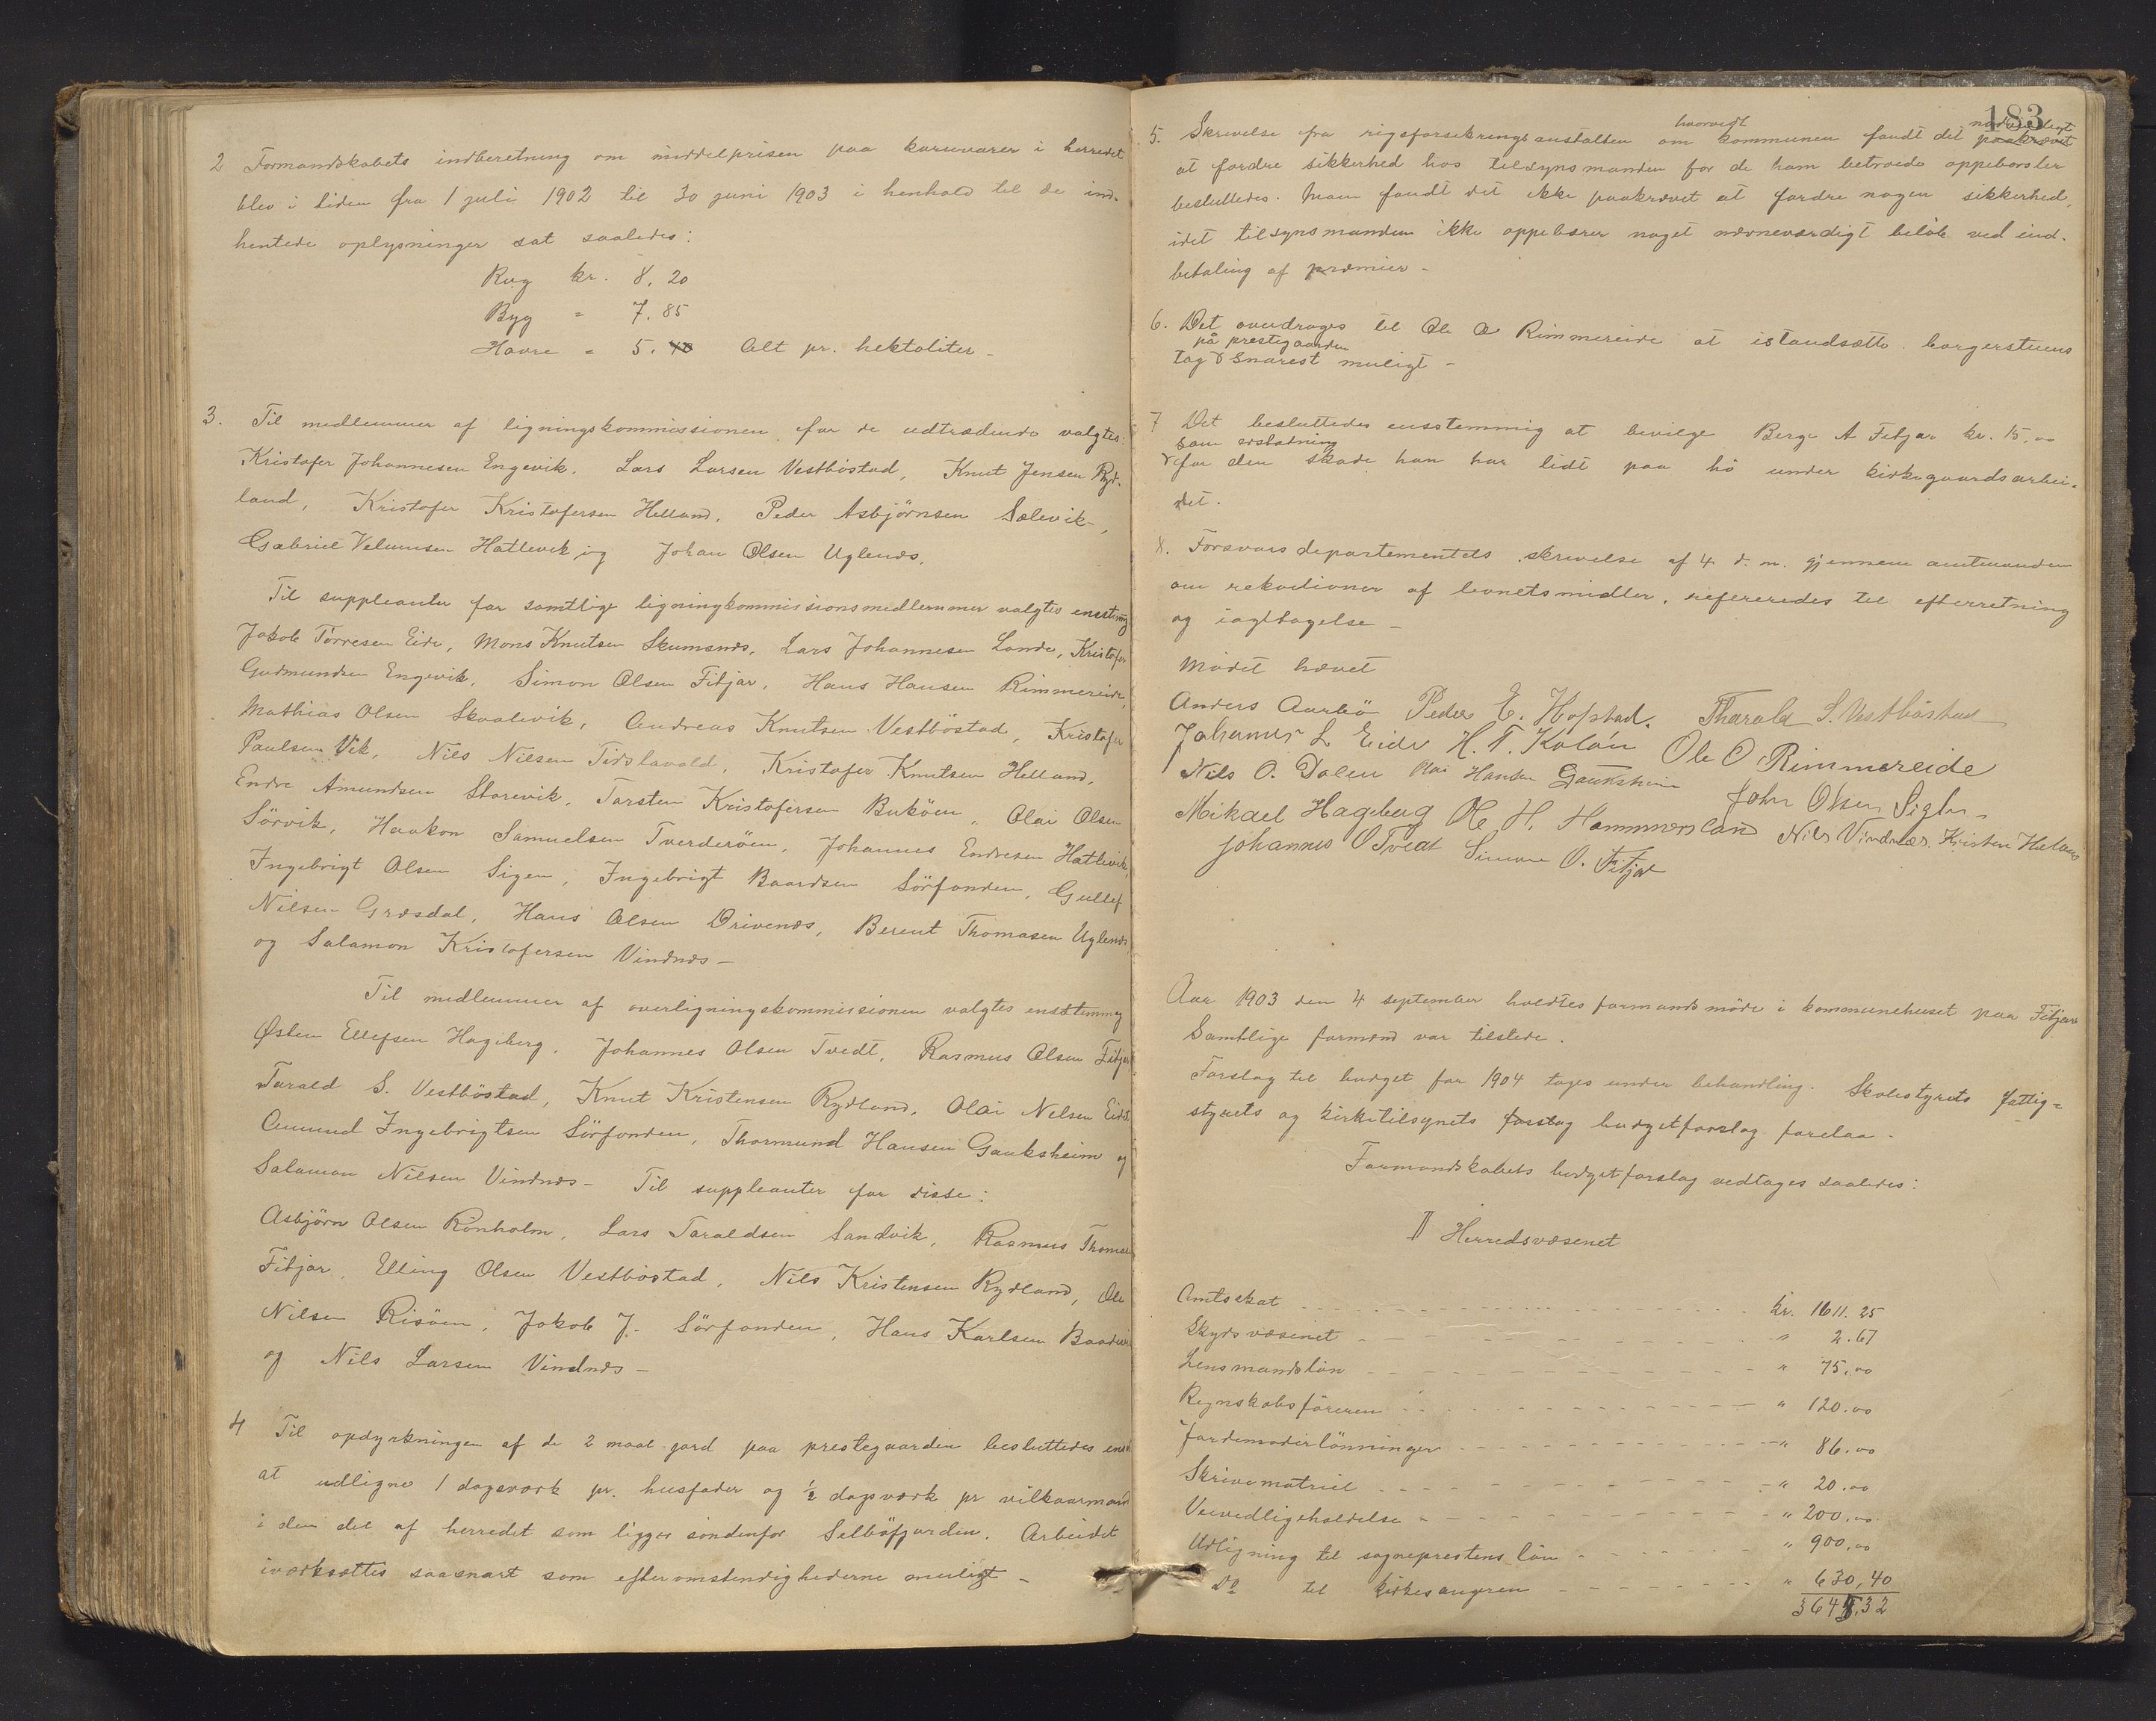 2 Formandskabets indberetning om middelprisen paa kornvarer i herredet
blev i tiden fra 1 juli 1902 til 30 juni 1903 i henhold til de ind-
hentede oplysninger sat saaledes:
Rug kr. 8,20
Byg " 7.85
Havre " 5.40 Alt pr. hektoliter -
3. Til medlemmer af ligningskommissionen for de udtrædende valgtes:
Kristofer Johannesen Engevik, Lars Larsen Vestböstad, Knut Jensen Ryd-
land, Kristofer Kristofersen Helland, Peder Asbjörnsen Sælevik,
Gabriel Velumsen Hatlevik og Johan Olsen Uglenæs.
Til suppleanter for samtlige ligningkommissionsmedlemmer valgtes enstemig
Jakob Torresen Eide, Mons Knutsen Skumsnæs, Lars Johannesen Lande, Kristofer
Gudmundsen Engevik, Simon Olsen Fitjar, Hans Hansen Rimmereide,
Mathias Olsen Skaalevik, Andreas Knutsen Vestböstad, Kristofer
Paulsen Vik, Nils Nilsen Tislavold, Kristofer Knutsen Helland,
Endre Amundsen Storevik, Torsten Kristofersen Buköen, Olai Olsen
Sörvik, Haakon Samuelsen Tverderöen, Johannes Endresen Hatlevik,
Ingebrigt Olsen Sigen, Ingebrigt Baardsen Sörfonden, Gullef
Nilsen Græsdal, Hans Olsen Drivenæs, Berent Thomasen Uglenæs
og Salamon Kristofersen Vindnæs -
Til medlemmer af overligningskommissionen valgtes enstemmig
Østen Ellefsen Hageberg, Johannes Olsen Tvedt, Rasmus Olsen Fitjar
Tarald S. Vestböstad, Knut Kristensen Rydland, Olai Nelsen Eide
Amund Ingebrigtsen Sörfonden, Thormund Hansen Gauksheim og
Salamon Nilsen Vindnæs - Til suppleanter for disse:
Asbjörn Olsen Rönholm, Lars Taraldsen Sandvik, Rasmus Thomas
Fitjar, Elling Olsen Vestböstad, Nils Kristensen Rydland, Ole
Nilsen Risöen, Jakob J. Sörfonden, Hans Karlsen Baade
og Nils Larsen Vindnæs -
4 Til opdyrkningen af de 2 maal jord paa prestegaarden besluttedes enst
at udligne 1 dagsværk pr. husfader og ½ dagsværk pr vilkaarmand
i den del af herredet som ligger söndenfor Selböfjorden. Arbeidet
iværksættes saasnart som efter omstendighederne muligt -
183
5. Skrivelse fra rigsforsikringsanstalten om hvorvidt kommunen fandt det paakrævet nødvendigt
at fordre sikkerhed hos tilsynsmanden for de ham betroede oppebörsler
besluttedes. Man fandt det ikke paakrævet at fordre nogen sikkerhed,
idet tilsynsmanden ikke oppebærer noget nævneværdigt belöb ved ind-
betaling af præmier -
6. Det overdrages til Ole O Rimmereide at istandsætte borgerstuens
på prestegaarden
tag snarest muligt -
7 Det besluttedes enstemmig at bevilge Berge A Fitjar kr. 15.00
som erstatning
for den skade han har lidt paa hö under kirkegaardsarbei-
det.
8. Forsvarsdepartementets skrivelse af 4 d.m. gjennem amtmanden
om rekvisitioner af levnetsmidler, refereredes til efterretning
og iagttagelse -
Mödet hævet
Anders Aarbö Peder E. Hopstad. Tharald S. Vestböstad
Johannes L Eide H. T. Kolön Ole O Rimmereide
Nils O. Dalen Olai Hansen Gauksheim John Olsen Sigln
Mikael Hageberg Ole H. Hammersland Nils Vindnæs. Kristen Helland
Johannes O Tvedt Simon O. Fitjar
Aar 1903 den 4 september holdtes formandsmöde i kommunehuset paa Fitjar
Samtlige formænd var tilstede.
Forslag til budget for 1904 toges under behandling. Skolestyrets fattig=
styrets og kirketilsynets forslag budgetforslag forelaa.
Formandskabets budgetforslag vedtages saaledes:
I Herredsvæsenet
Amtsskat kr. 1611.25
Skydsvæsenet " 2.67
Lensmandslön " 75.00
Regnskabsföreren " 120.00
Jordemoderlönninger " 86.00
Skrivematriel " 20.00
Veivedligeholdelse " 200.00
Udligning til sogneprestens lön " 900.00
Do til kirkesangeren " 630,40
3645,32